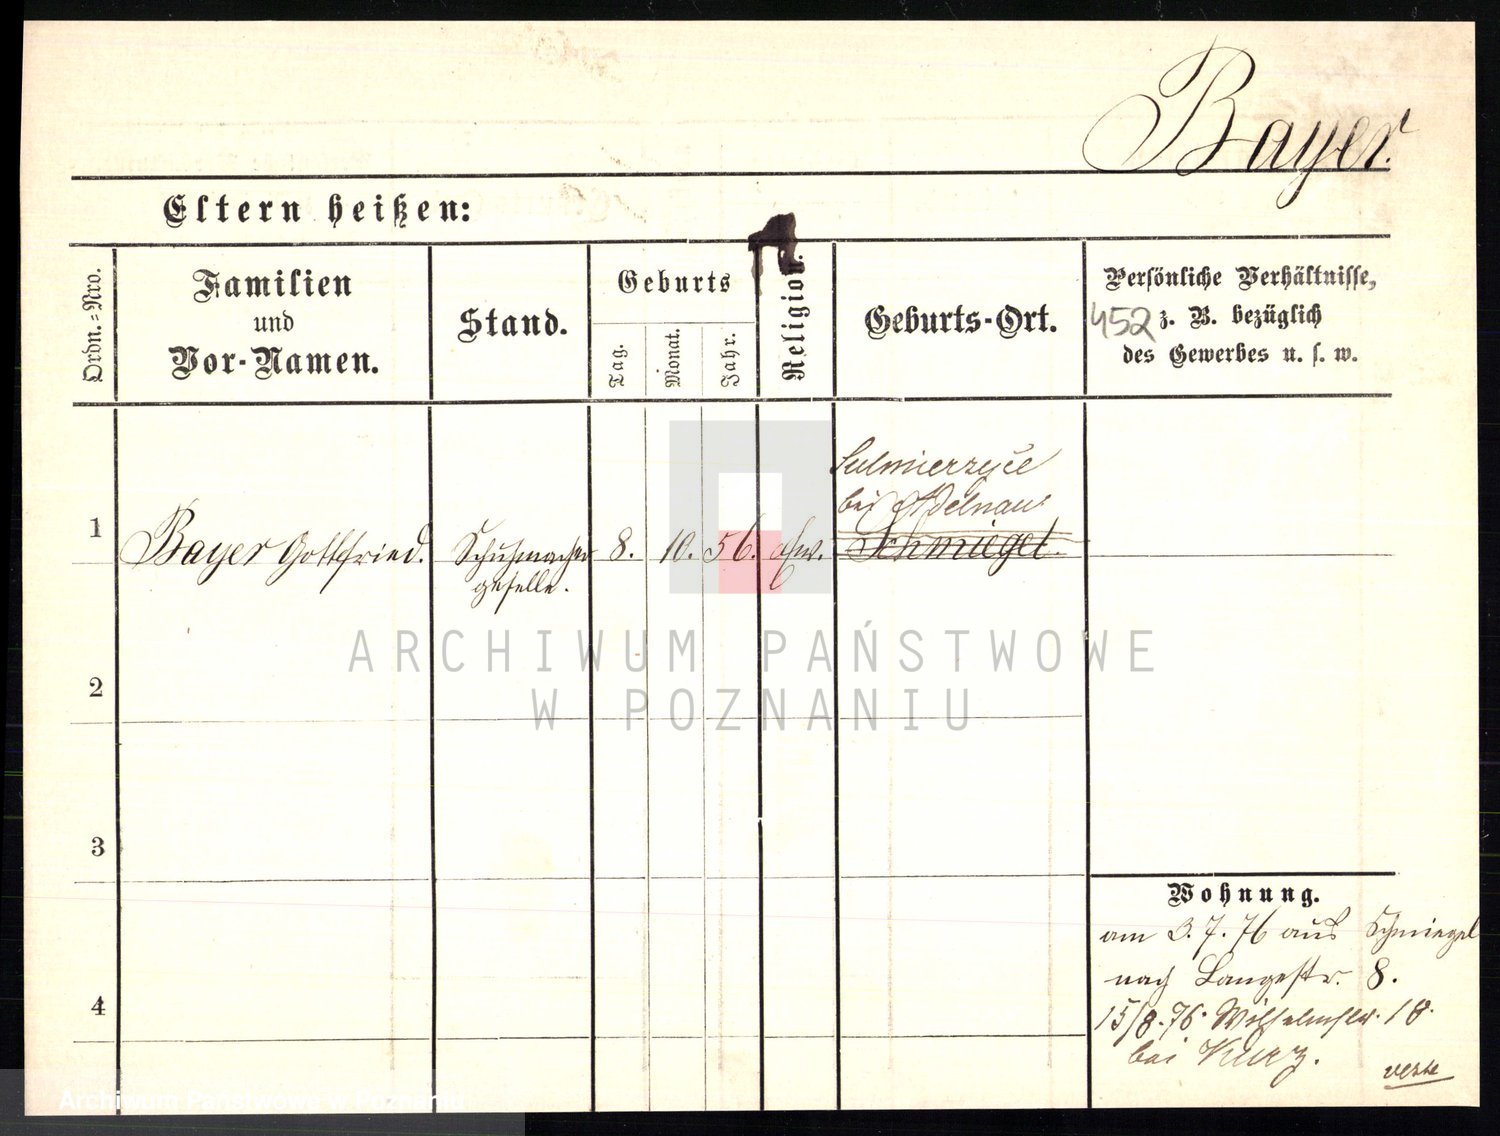 Bayer.
Eltern heißen:
Ordn.-Nro.
Familien
und
Vor-Namen.
Stand.
Geburts
Tag.
Monat.
Jahr.
Religion.
Geburts-Ort.
Persönliche Verhältnisse,
z. B. bezüglich
des Gewerbes u. s. w.
452
1
Bayer Gottfried.
Schuhmacher
geselle.
8.
10.
56.
ev.
Sulmierzyce
bei Adelnau
Schmiegel.
2
3
4
Wohnung.
am 3.7.76 aus Schmiegel
nach Langestr. 8.
15/8.76. Wilhelmstr. 18.
bei Kurz.
verte
ARCHIWUM PAŃSTWOWE
W POZNANIU
Archiwum Państwowe w Poznaniu